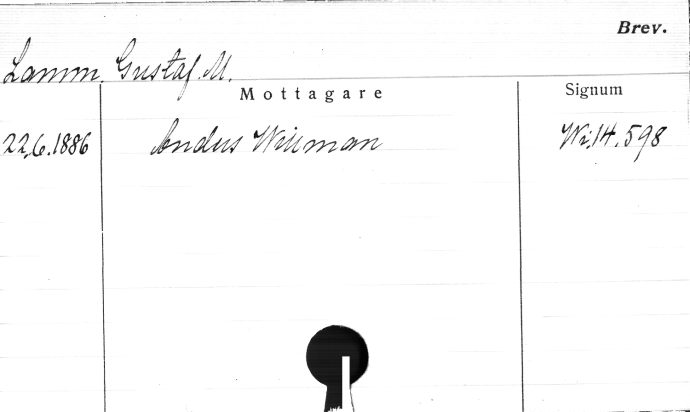 Brev.
Lamm, Gustaf M.
Mottagare
Signum
22.6.1886 Andus Willman Wi.14.598